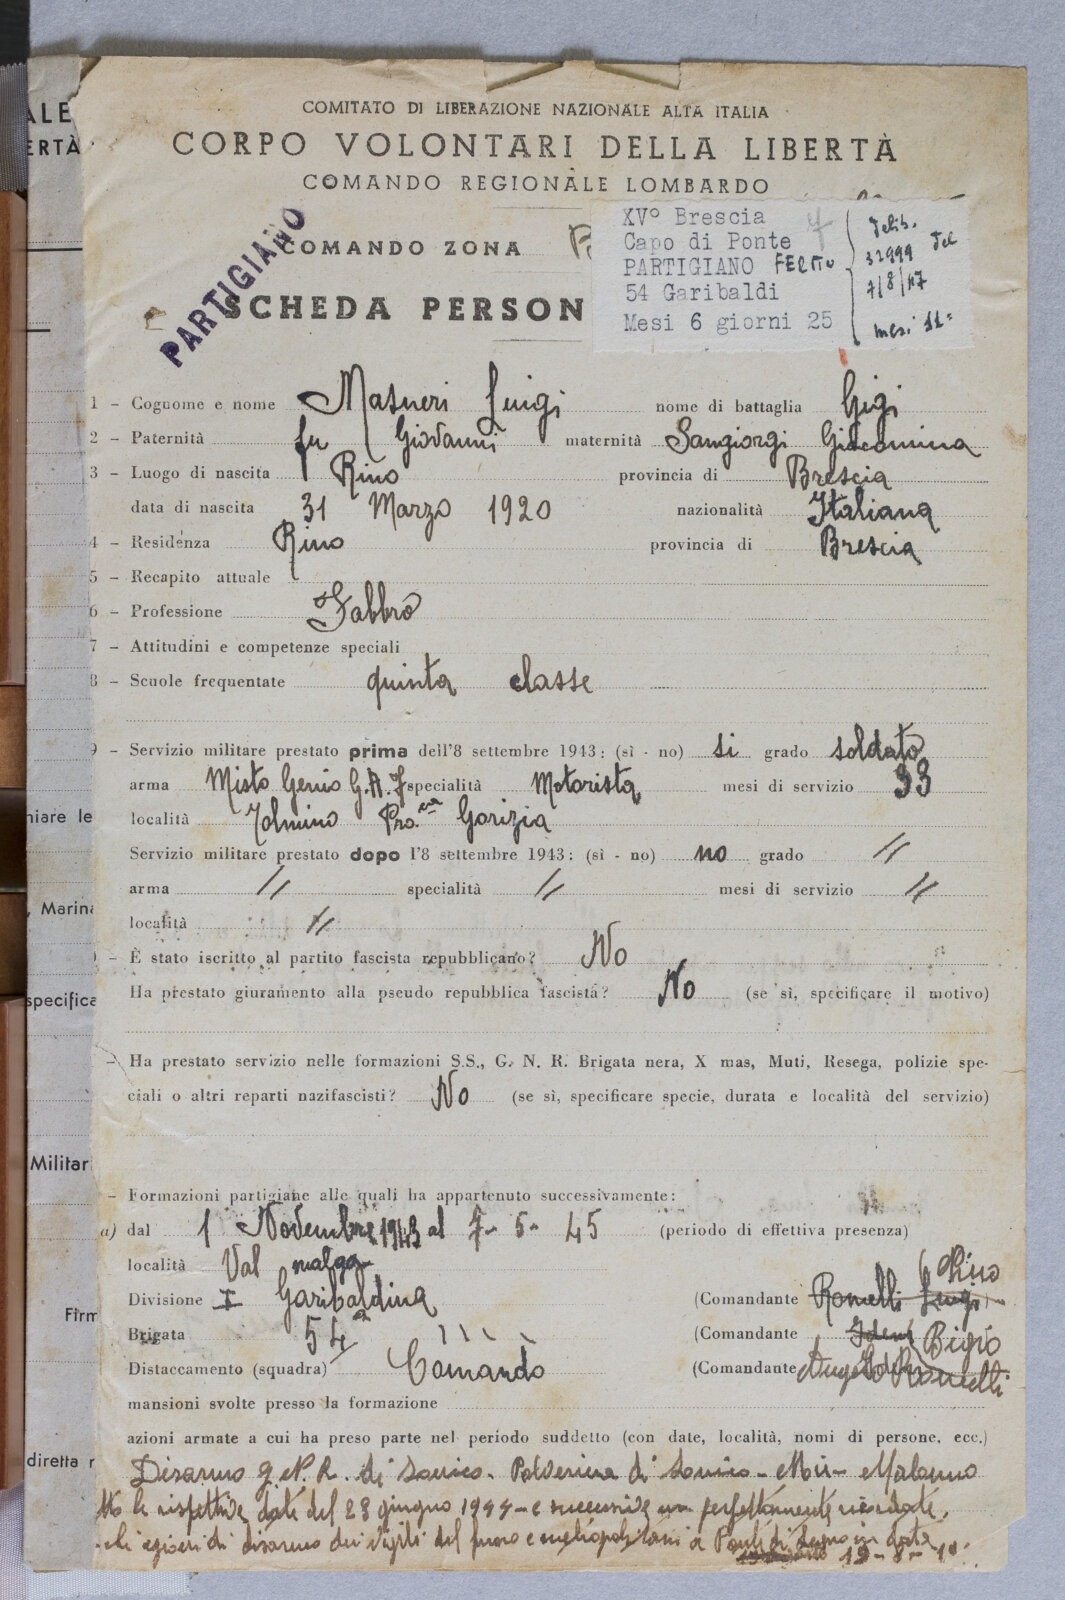 COMITATO DI LIBERAZIONE NAZIONALE ALTA ITALIA
CORPO VOLONTARI DELLA LIBERTÀ
COMANDO REGIONALE LOMBARDO
COMANDO ZONA
PARTIGIANO
SCHEDA PERSON
XVº Brescia
Capo di Ponte
PARTIGIANO FERITO
54 Garibaldi
Mesi 6 giorni 25
Delib.
32999 del
7/8/47
mesi 11=
1 - Cognome e nome Masneri Luigi nome di battaglia Gigi
2 - Paternità fu Giovanni maternità Sangiorgi Giacomina
3 - Luogo di nascita Rino provincia di Brescia
data di nascita 31 Marzo 1920 nazionalità Italiana
4 - Residenza Rino provincia di Brescia
5 - Recapito attuale
6 - Professione Fabbro
7 - Attitudini e competenze speciali
8 - Scuole frequentate quinta classe
9 - Servizio militare prestato prima dell'8 settembre 1943: (sì - no) si grado soldato
arma Misto Genio G.A.F specialità Motorista mesi di servizio 33
località Tolmino Pro.cia Gorizia
Servizio militare prestato dopo l'8 settembre 1943: (sì - no) no grado //
arma // specialità // mesi di servizio //
località //
- È stato iscritto al partito fascista repubblicano? No
Ha prestato giuramento alla pseudo repubblica fascista? No (se sì, specificare il motivo)
- Ha prestato servizio nelle formazioni S.S., G. N. R. Brigata nera, X mas, Muti, Resega, polizie spe-
ciali o altri reparti nazifascisti? No (se sì, specificare specie, durata e località del servizio)
- Formazioni partigiane alle quali ha appartenuto successivamente:
a) dal 1 Novembre 1943 al 7-5-45 (periodo di effettiva presenza)
località Val malga
Divisione I Garibaldina (Comandante Romelli Luigi Nino
Brigata 54a (Comandante Idem Bigio
Distaccamento (squadra) Comando (Comandante Angelo Romelli
mansioni svolte presso la formazione
azioni armate a cui ha preso parte nel periodo suddetto (con date, località, nomi di persone, ecc.)
Disarmo g.N.R. di Sonico. Polveriera di Sonico - Mù - Malonno
le rispettive date del 28 giugno 1944 - e successive non perfettamente ricordate.
di disarmo dei vigili del fuoco e metropolitani a Ponte di Legno in data
19-8-
ALE
ERTÀ
niare le
, Marina
specifica
Militar
Firm
diretta